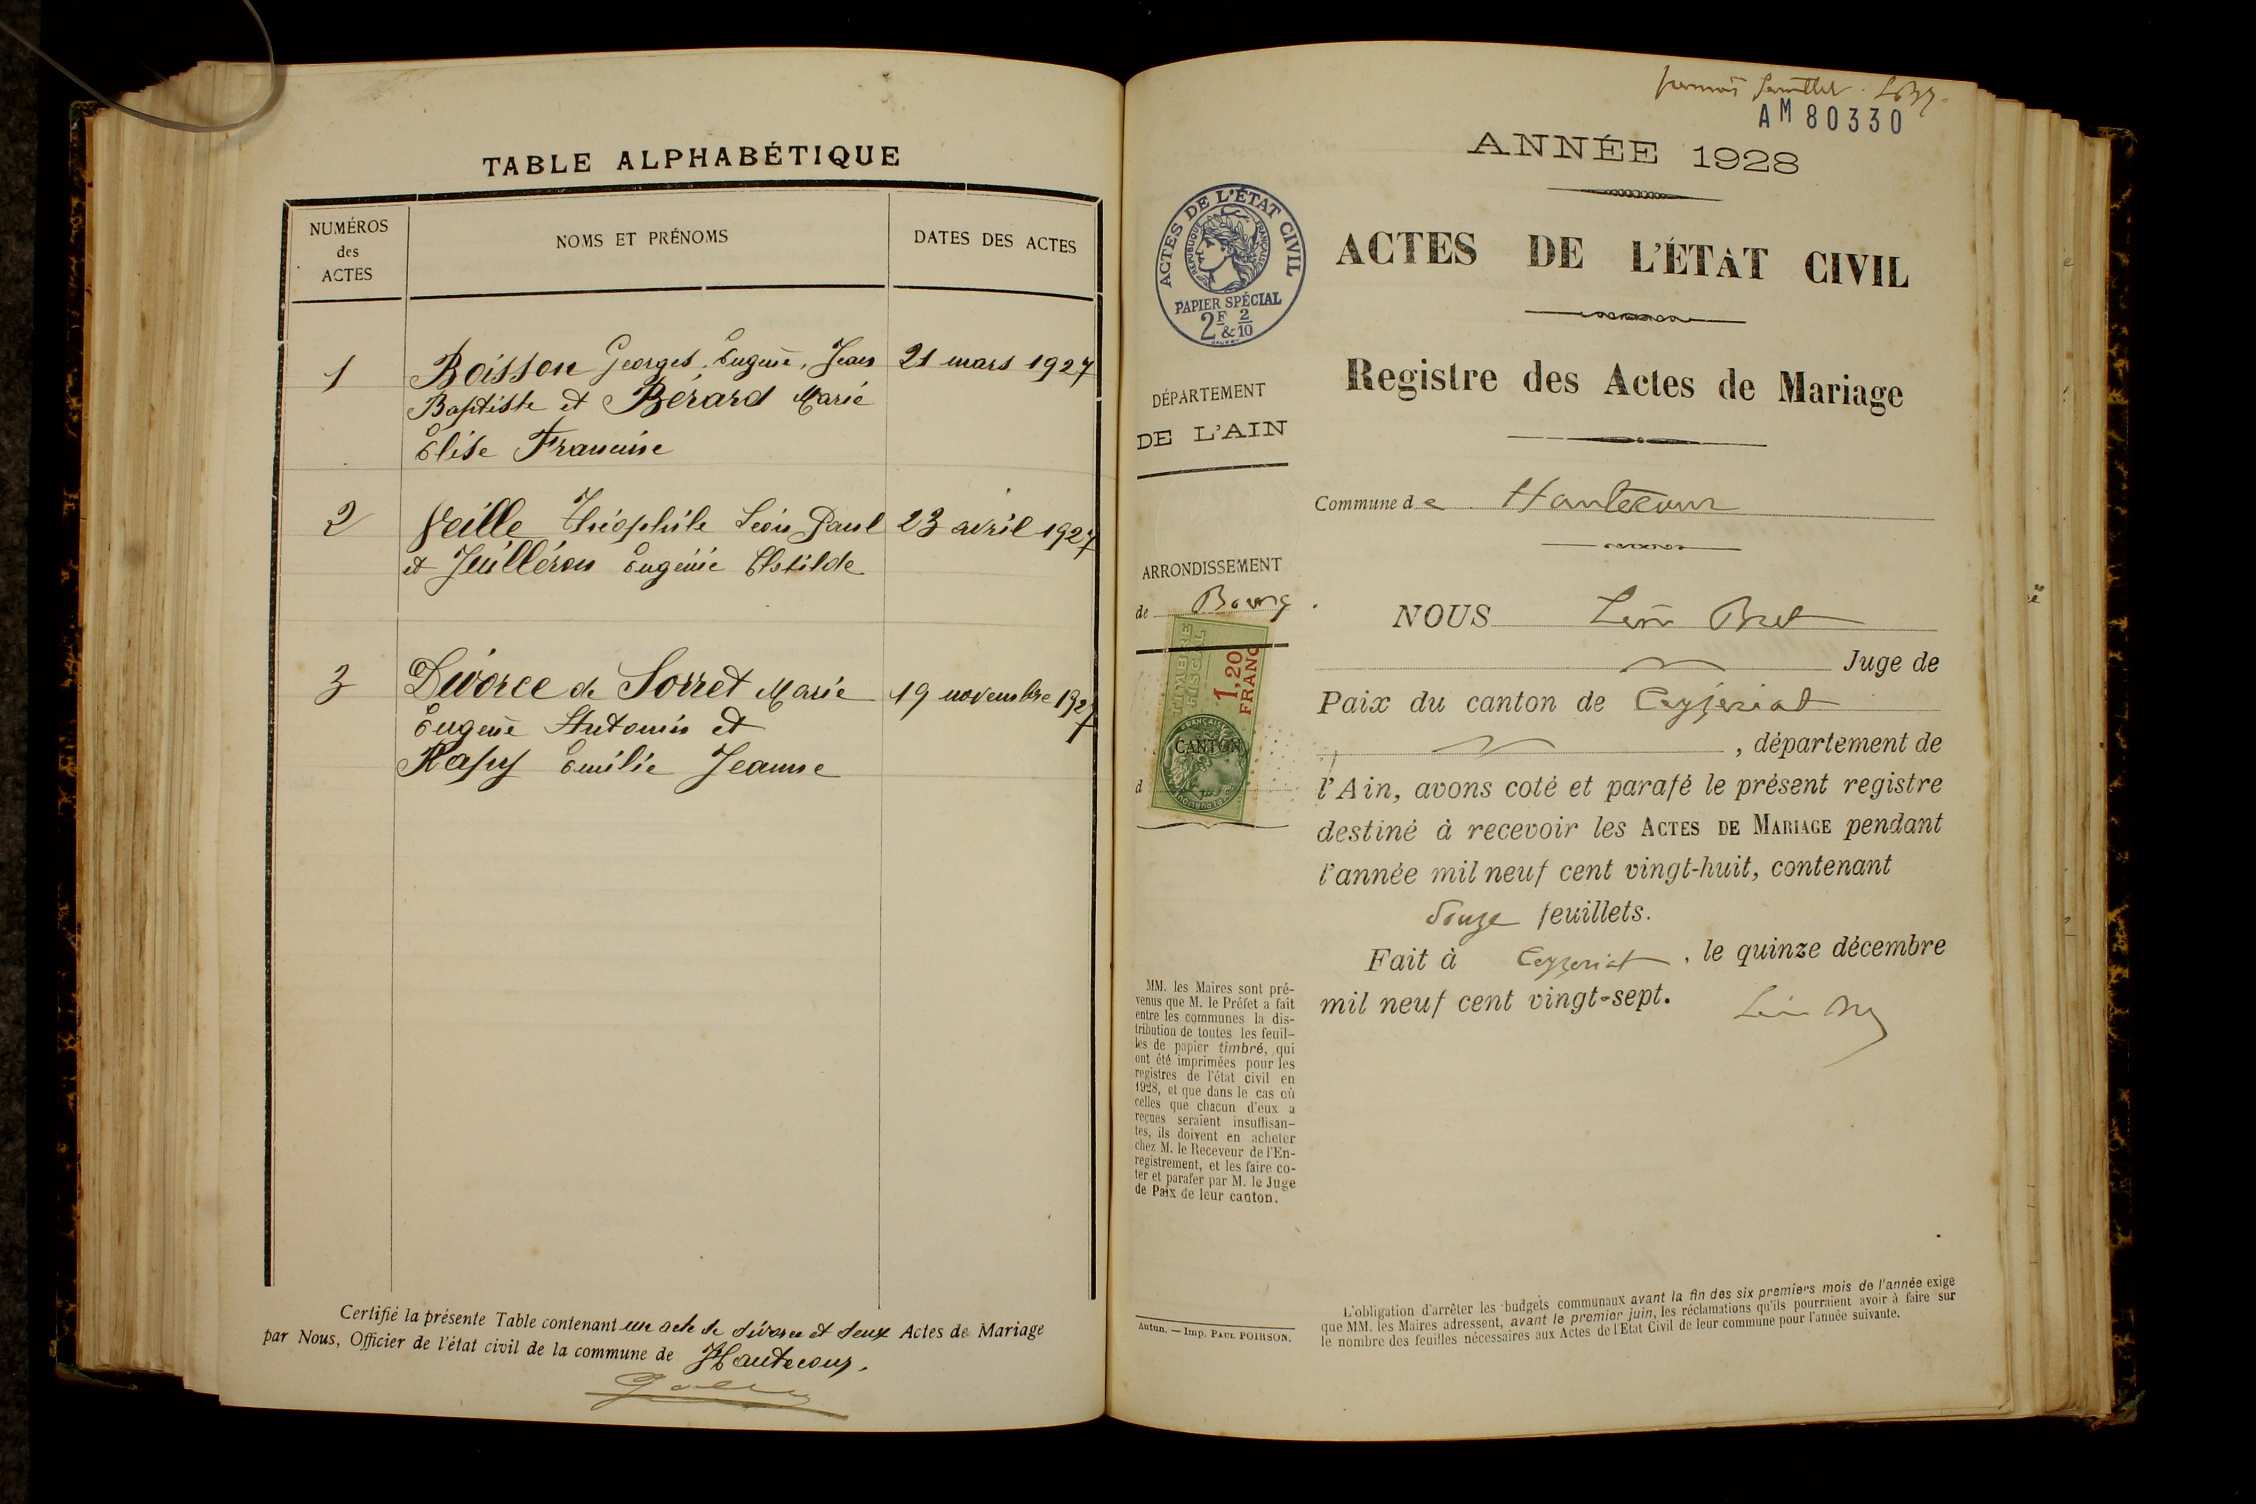 TABLE ALPHABÉTIQUE
NUMÉROS
des
ACTES
NOMS ET PRÉNOMS
DATES DES ACTES
1 Boisson Georges, Eugène, Jean 21 mars 1927
Baptiste et Bérard Marie
Elise Francine
2 Veille Théophile Léon Paul 23 avril 1927
et Juilléron Eugénie Clotilde
3 Divorce de Sorret Marie 19 novembre 1927
Eugène Antonin et
Rapy Emilie Jeanne
Certifié la présente Table contenant un acte de divorce et deux Actes de Mariage
par Nous, Officier de l'état civil de la commune de Hautecour.
AM 80330
ANNÉE 1928
ACTES DE L'ÉTAT CIVIL
RÉPUBLIQUE FRANÇAISE
PAPIER SPÉCIAL
2F & 2/10
ACTES DE L'ÉTAT CIVIL
Registre des Actes de Mariage
DÉPARTEMENT
DE L'AIN
ARRONDISSEMENT
de Bourg
TIMBRE
FISCAL
1,20
FRANC
CANTON
d
Commune de Hautecour
NOUS Léon Bret
Juge de
Paix du canton de Ceyzériat
, département de
l'Ain, avons coté et parafé le présent registre
destiné à recevoir les ACTES DE MARIAGE pendant
l'année mil neuf cent vingt-huit, contenant
douze feuillets.
Fait à Ceyzeriat, le quinze décembre
mil neuf cent vingt-sept.
MM. les Maires sont pré-
venus que M. le Préfet a fait
entre les communes la dis-
tribution de toutes les feuil-
les de papier timbré, qui
ont été imprimées pour les
registres de l'état civil en
1928, et que dans le cas où
celles que chacun d'eux a
reçues seraient insuffisan-
tes, ils doivent en acheter
chez M. le Receveur de l'En-
registrement, et les faire co-
ter et parafer par M. le Juge
de Paix de leur canton.
Autun. — Imp. PAUL POIRSON.
L'obligation d'arrêter les budgets communaux avant la fin des six premiers mois de l'année exige
que MM. les Maires adressent, avant le premier juin, les réclamations qu'ils pourraient avoir à faire sur
le nombre des feuilles nécessaires aux Actes de l'Etat Civil de leur commune pour l'année suivante.